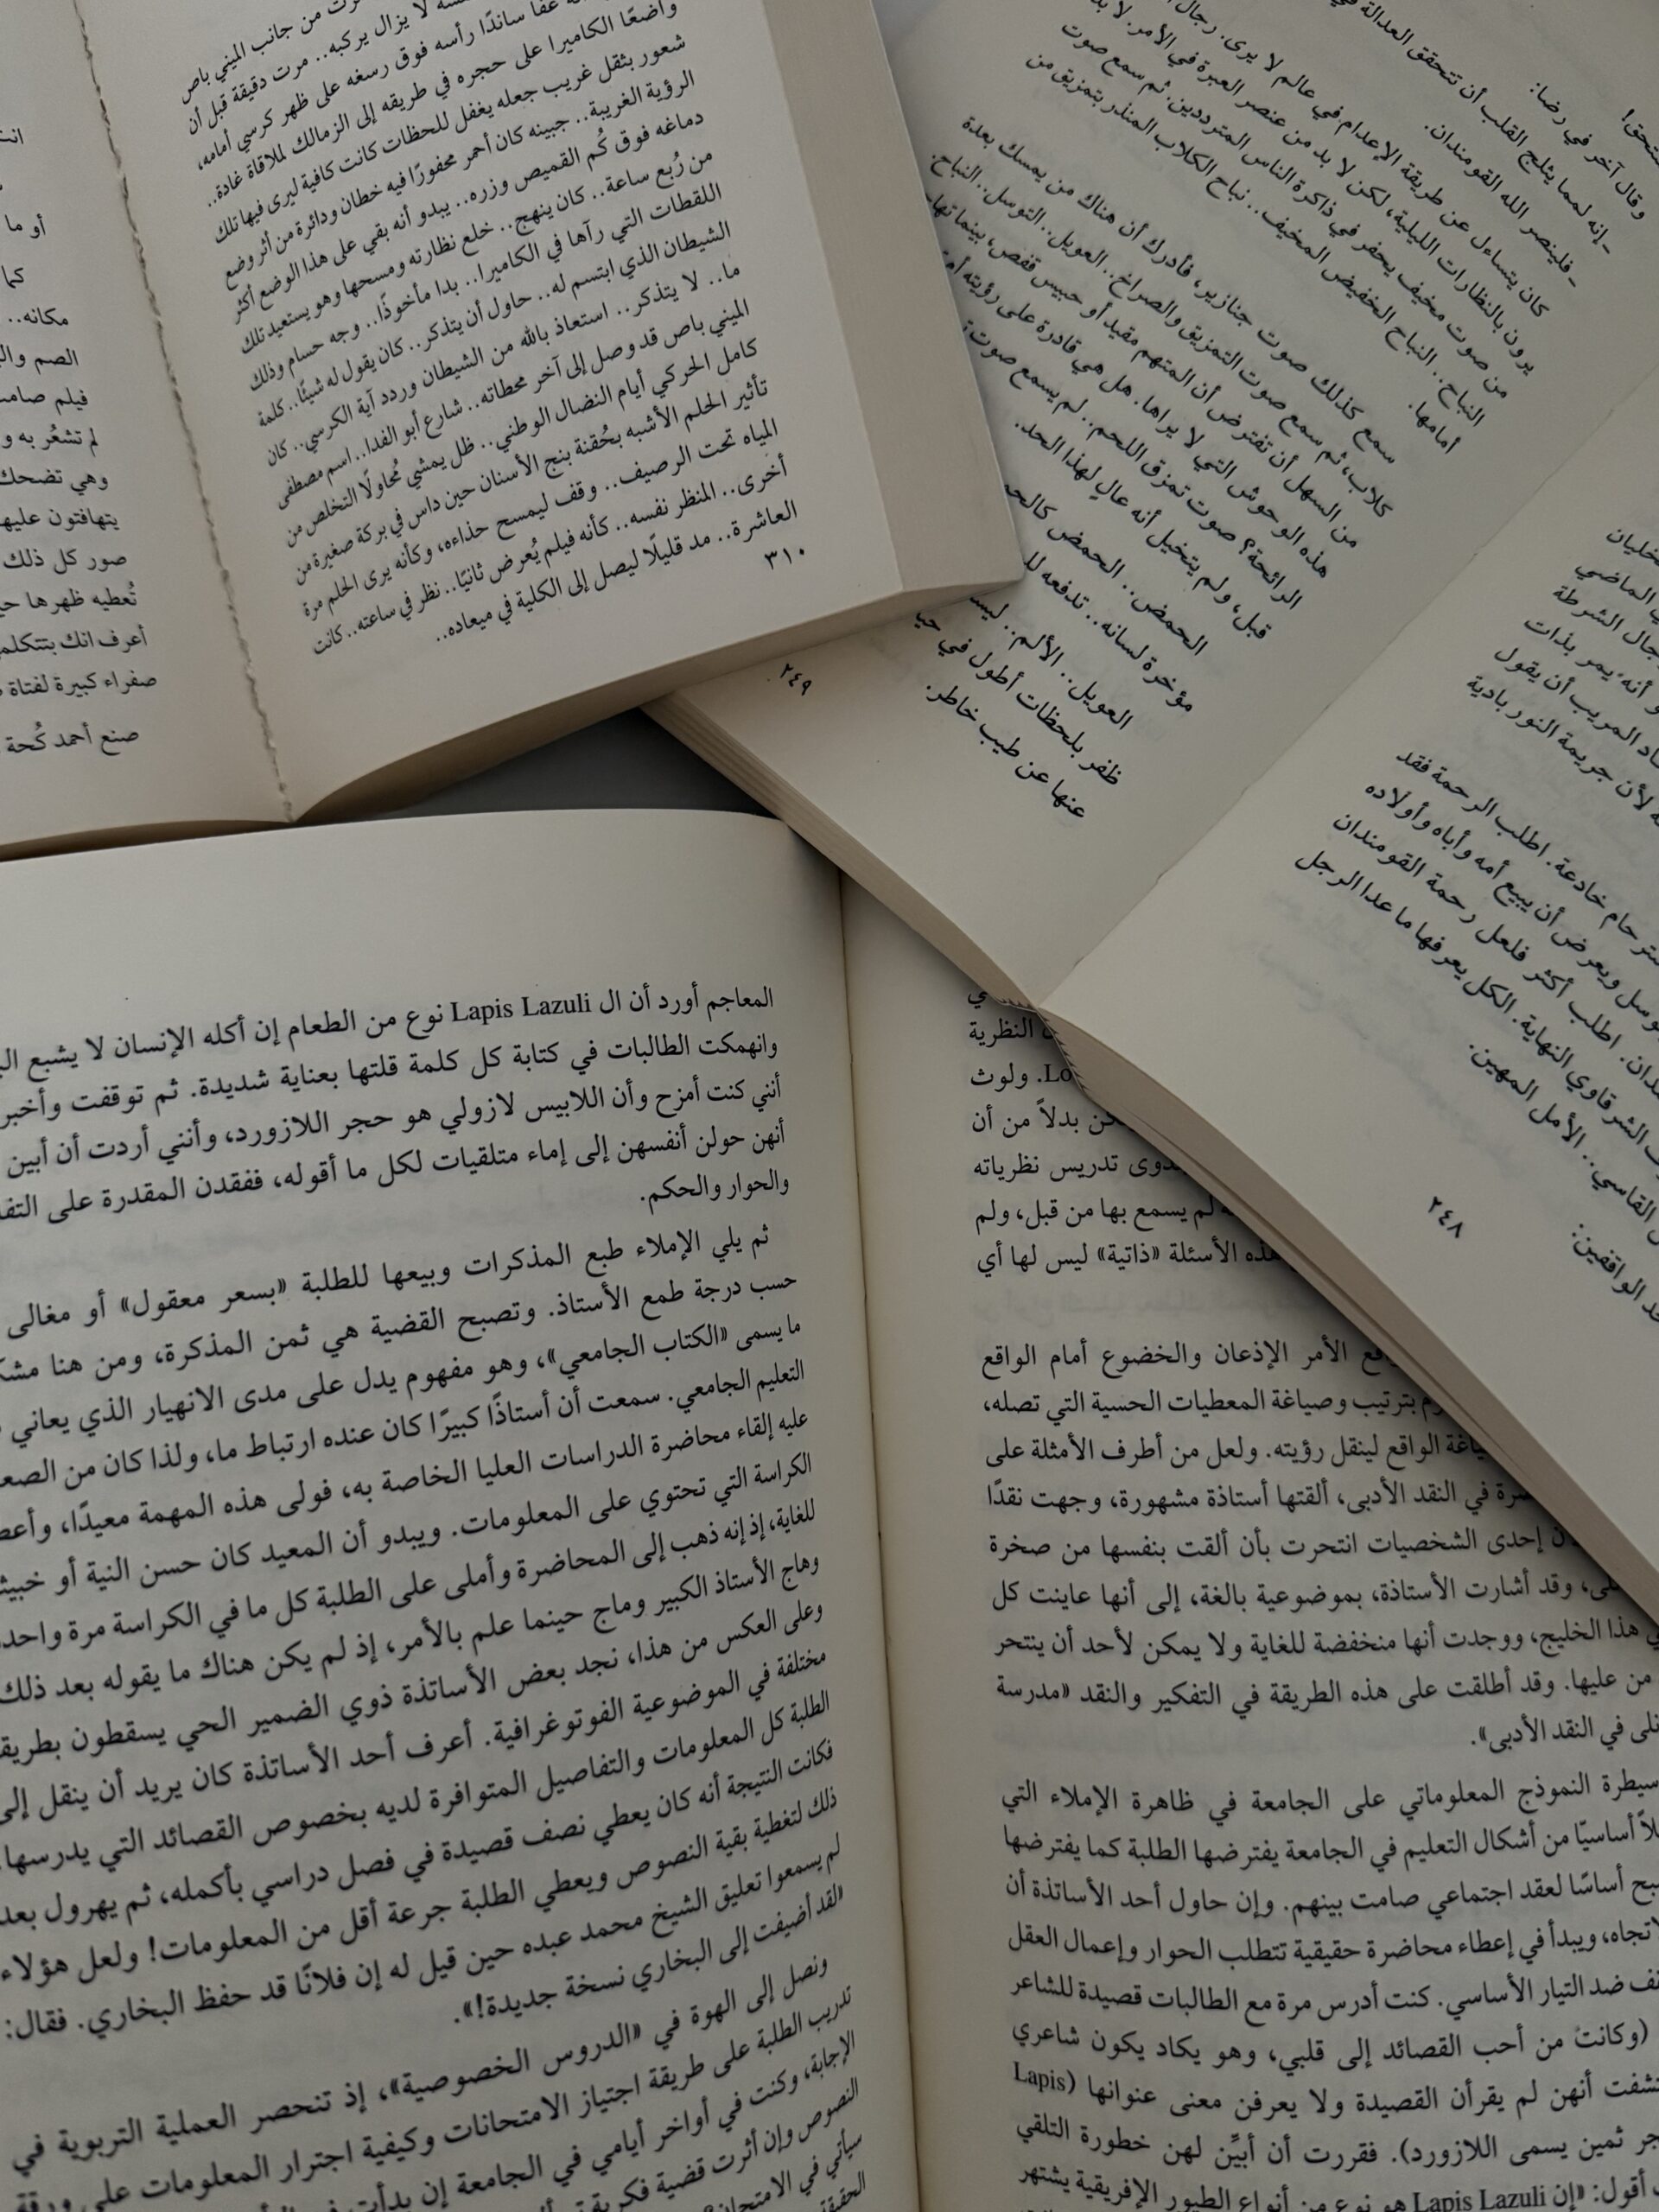 من جانب الميني باص
لا يزال يركبه.. مرت دقيقة قبل أن
عفا ساندًا رأسه فوق رسغه على ظهر كرسي أمامه،
واضعًا الكاميرا على حجره في طريقه إلى الزمالك لملاقاة غادة..
شعور بثقل غريب جعله يغفل للحظات كانت كافية ليرى فيها تلك
الرؤية الغريبة.. جبينه كان أحمر محفورًا فيه خطان ودائرة من أثر وضع
دماغه فوق كُم القميص وزره.. يبدو أنه بقي على هذا الوضع أكثر
من رُبع ساعة.. كان ينهج.. خلع نظارته ومسحها وهو يستعيد تلك
اللقطات التي رآها في الكاميرا.. بدا مأخوذًا.. وجه حسام وذلك
الشيطان الذي ابتسم له.. حاول أن يتذكر.. كان يقول له شيئًا.. كلمة
ما.. لا يتذكر.. استعاذ بالله من الشيطان وردد آية الكرسي.. كان
الميني باص قد وصل إلى آخر محطاته.. شارع أبو الفدا.. اسم مصطفى
كامل الحركي أيام النضال الوطني.. ظل يمشي مُحاولًا التخلص من
تأثير الحلم الأشبه بحُقنة بنج الأسنان حين داس في بركة صغيرة من
المياه تحت الرصيف.. وقف ليمسح حذاءه، وكأنه يرى الحلم مرة
أخرى.. المنظر نفسه.. كأنه فيلم يُعرض ثانيًا.. نظر في ساعته.. كانت
العاشرة.. مد قليلًا ليصل إلى الكلية في ميعاده..
٣١٠
أو ما
كما
مكانه..
الصم
فيلم
لم تشعُر به
وهي تضحك
يتهافتون
صور كل ذلك
تُعطيه ظهرها
أعرف انك بتتكلم
صفراء كبيرة لفتاة
صنع أحمد كُحة
وقال آخر في رضا:
- إنه لمما يثلج القلب أن تتحقق العدالة
- فلينصر الله القومندان.
كان يتساءل عن طريقة الإعدام في عالم لا يرى. رجال
يرون بالنظارات الليلية، لكن لا بد من عنصر العبرة في الأمر. لا بد
من صوت مخيف يحفر في ذاكرة الناس المترددين. ثم سمع صوت
النباح.. النباح الخفيض المخيف.. نباح الكلاب المنذر بتمزيق من
أمامها.
سمع كذلك صوت جنازير، فأدرك أن هناك من يمسك بعدة
كلاب، ثم سمع صوت التمزيق والصراخ.. العويل.. التوسل.. النباح.
من السهل أن تفترض أن المتهم مقيد أو حبيس قفص، بينما تهاجمه
هذه الوحوش التي لا يراها. هل هي قادرة على رؤيته
الرائحة؟ صوت تمزق اللحم.. لم يسمع صوت
قبل، ولم يتخيل أنه عالٍ لهذا الحد.
الحمض.. الحمض
مؤخرة لسانه.. تدفعه
العويل.. الألم..
ظفر بلحظات أطول في
عنها عن طيب خاطر.
٢٤٩
الماضي
الشرطة
أنه يمر بذات
المريب أن يقول
لأن جريمة النور بادية
خادعة. اطلب الرحمة فقد
ويعرض أن يبيع أمه وأباه وأولاده
اطلب أكثر فلعل رحمة القومندان
الشرقاوي النهاية. الكل يعرفها ما عدا الرجل
القاسي.. الأمل المهين.
الواقفين:
٢٤٨
المعاجم أورد أن ال Lapis Lazuli نوع من الطعام إن أكله الإنسان لا يشبع
وانهمكت الطالبات في كتابة كل كلمة قلتها بعناية شديدة. ثم توقفت
أنني كنت أمزح وأن اللابيس لازولي هو حجر اللازورد، وأنني أردت أن أبين
أنهن حولن أنفسهن إلى إماء متلقيات لكل ما أقوله، ففقدن المقدرة على
والحوار والحكم.
ثم يلي الإملاء طبع المذكرات وبيعها للطلبة «بسعر معقول» أو مغالى
حسب درجة طمع الأستاذ. وتصبح القضية هي ثمن المذكرة، ومن هنا
ما يسمى «الكتاب الجامعي»، وهو مفهوم يدل على مدى الانهيار الذي يعاني
التعليم الجامعي. سمعت أن أستاذًا كبيرًا كان عنده ارتباط ما، ولذا كان من
عليه إلقاء محاضرة الدراسات العليا الخاصة به، فولى هذه المهمة معيدًا،
الكراسة التي تحتوي على المعلومات. ويبدو أن المعيد كان حسن النية أو
للغاية، إذ إنه ذهب إلى المحاضرة وأملى على الطلبة كل ما في الكراسة مرة
وهاج الأستاذ الكبير وماج حينما علم بالأمر، إذ لم يكن هناك ما يقوله بعد ذلك
وعلى العكس من هذا، نجد بعض الأساتذة ذوي الضمير الحي يسقطون
مختلفة في الموضوعية الفوتوغرافية. أعرف أحد الأساتذة كان يريد أن ينقل إلى
الطلبة كل المعلومات والتفاصيل المتوافرة لديه بخصوص القصائد التي يدرسها
فكانت النتيجة أنه كان يعطي نصف قصيدة في فصل دراسي بأكمله، ثم يهرول بعد
ذلك لتغطية بقية النصوص ويعطي الطلبة جرعة أقل من المعلومات! ولعل هؤلاء
لم يسمعوا تعليق الشيخ محمد عبده حين قيل له إن فلانًا قد حفظ البخاري. فقال:
«لقد أضيفت إلى البخاري نسخة جديدة!».
ونصل إلى الهوة في «الدروس الخصوصية»، إذ تنحصر العملية التربوية في
تدريب الطلبة على طريقة اجتياز الامتحانات وكيفية اجترار المعلومات على ورقة
الإجابة، وكنت في أواخر أيامي في الجامعة إن بدأت
النصوص وإن أثرت قضية فكرية
سيأتي في الامتحان؟
النظرية
ولوث
بدلاً من أن
تدريس نظرياته
لم يسمع بها من قبل، ولم
هذه الأسئلة «ذاتية» ليس لها أي
الأمر الإذعان والخضوع أمام الواقع
بترتيب وصياغة المعطيات الحسية التي تصله،
الواقع لينقل رؤيته. ولعل من أطرف الأمثلة على
في النقد الأدبى، ألقتها أستاذة مشهورة، وجهت نقدًا
إحدى الشخصيات انتحرت بأن ألقت بنفسها من صخرة
وقد أشارت الأستاذة، بموضوعية بالغة، إلى أنها عاينت كل
هذا الخليج، ووجدت أنها منخفضة للغاية ولا يمكن لأحد أن ينتحر
من عليها. وقد أطلقت على هذه الطريقة في التفكير والنقد «مدرسة
في النقد الأدبى».
سيطرة النموذج المعلوماتي على الجامعة في ظاهرة الإملاء التي
أساسيًا من أشكال التعليم في الجامعة يفترضها الطلبة كما يفترضها
أساسًا لعقد اجتماعي صامت بينهم. وإن حاول أحد الأساتذة أن
ويبدأ في إعطاء محاضرة حقيقية تتطلب الحوار وإعمال العقل
ضد التيار الأساسي. كنت أدرس مرة مع الطالبات قصيدة للشاعر
(وكانت من أحب القصائد إلى قلبي، وهو يكاد يكون شاعري
أنهن لم يقرأن القصيدة ولا يعرفن معنى عنوانها (Lapis
ثمين يسمى اللازورد). فقررت أن أبيِّن لهن خطورة التلقي
أقول: «إن Lapis Lazuli هو نوع من أنواع الطيور الإفريقية يشتهر